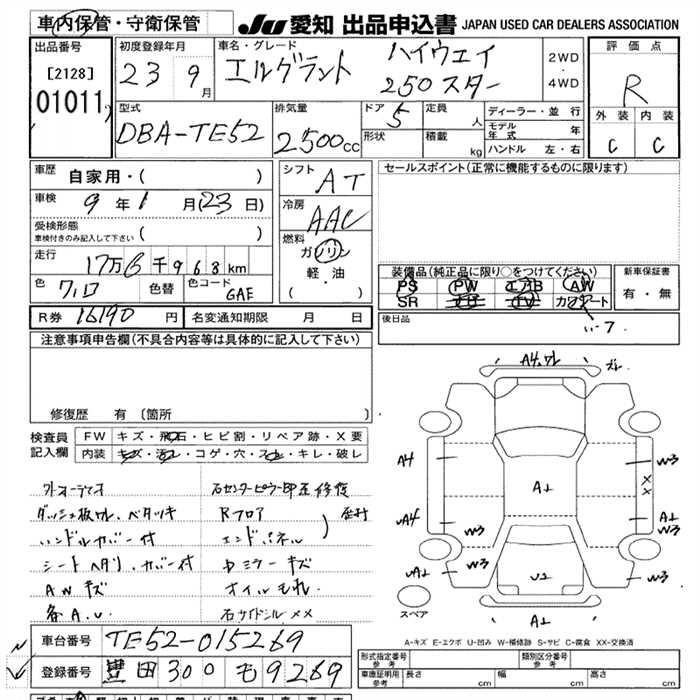 車内保管・守衛保管
JU 愛知 出品申込書 JAPAN USED CAR DEALERS ASSOCIATION
出品番号 [2128] 01011
初度登録年月 23 9月
車名・グレード エルグランド ハイウェイ 250スター
2WD ・ 4WD
評価点 R
外装 内装
C C
型式 DBA-TE52
排気量 2500cc
ドア 5
形状
定員 人
積載 kg
ディーラー・並行
モデル年式 年
ハンドル 左・右
車歴 自家用・( )
車検 9年1月(23日)
受検形態 車検付きのみ記入して下さい ( )
走行 17万6千968km
色 クロ 色替 色コード GAE
R券 16190円 名変通知期限 月 日
シフト AT
冷房 AAC
燃料 ガソリン
軽・油
( )
セールスポイント(正常に機能するものに限ります)
装備品(純正品に限り○をつけてください)
PS PW エアB AW
SR TV カワシート
新車保証書
有・無
後日品
注意事項申告欄(不具合内容等は具体的に記入して下さい)
修復歴 有 (箇所 )
検査員記入欄
FW キズ・飛石・ヒビ割・リペア跡・X要
内装 キズ・汚レ・コゲ・穴・スレ・キレ・破レ
社外オーディオ
ダッシュ板ワレ、ベタツキ
ハンドルカバー付
シートヘタリ、カバー付
AWキズ
各A.U.
右センターピラー即至修復
Rフロア
エンドパネル
歪村
ドミラーキズ
オイルもれ
右サイドシルメメ
A4,ワレ ズレ
A4 W3
XX
A1
A4 A1
W3 W3
A1 W3
U2
A1
スペア
A-キズ E-エクボ U-凹み W-補修跡 S-サビ C-腐食 XX-交換済
車台番号 TE52-015269
登録番号 豊田300 も9269
形式指定番号 参考
類別区分番号 参考
車庫証明用 参考 長さ cm 幅 cm 高さ cm